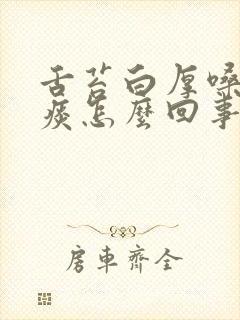 舌苔白厚嗓
痰怎麼回事
房車齊全